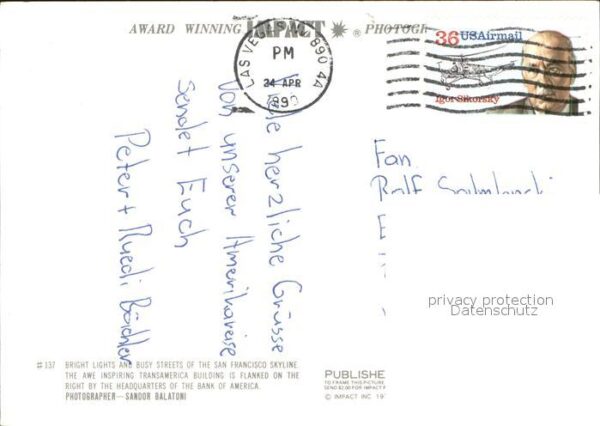 AWARD WINNING IMPACT ® PHOTOGR
LAS VEGAS 890 4A
PM
24 APR
36 USAirmail
Igor Sikorsky
Viele herzliche Grüsse
Von unserer Amerikareise
sendet Euch
Peter + Ruedi Bächler
Fam
Ralf
E
privacy protection
Datenschutz
#137 BRIGHT LIGHTS AND BUSY STREETS OF THE SAN FRANCISCO SKYLINE
THE AWE INSPIRING TRANSAMERICA BUILDING IS FLANKED ON THE
RIGHT BY THE HEADQUARTERS OF THE BANK OF AMERICA.
PHOTOGRAPHER—SANDOR BALATONI
PUBLISHE
TO FRAME THIS PICTURE
SEND $2.00 FOR IMPACT F
© IMPACT INC. 19